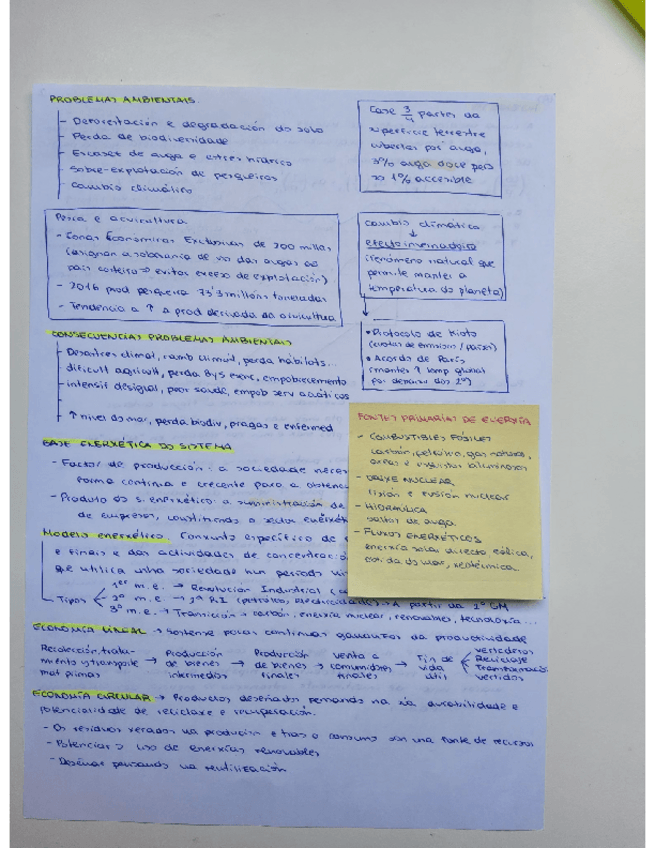 PROBLEMAS AMBIENTAIS
- Deforestación e degradación do solo
- Perda de biodiversidade
- Escasez de auga e estrés hídrico
- Sobre-explotación de pesqueiros
- Cambio climático
Case 3/4 partes da
superficie terrestre
cubertas por auga,
3% auga doce pero
só 1% accesible
Pesca e acuicultura
- Zonas Económicas Exclusivas de 200 millas
(asignan a soberanía de uso das augas ao
país costeiro → evitar exceso de explotación)
- 2016 prod pesqueira 73'3 millóns toneladas
- Tendencia a ↑ a prod derivada da acuicultura
Cambio climático
↓
efecto invernadoiro
(fenómeno natural que
permite manter a
temperatura do planeta)
• Protocolo de Kioto
(cuotas de emisión / países)
• Acordo de París
(manter ↑ temp global
por debaixo dos 2º)
CONSECUENCIAS PROBLEMAS AMBIENTAIS
- Desastres climat, camb climát, perda hábitats...
- dificult agricult, perda B y S esenc, empobrecemento
- intensif desigual, peor saúde, empob serv acuáticos
- ↑ nivel do mar, perda biodiv, pragas e enfermed
FONTES PRIMARIAS DE ENERXÍA
- COMBUSTIBLES FÓSILES
carbón, petróleo, gas natural,
areas e esquistos bituminosos
- NUCLEAR
fisión e fusión nuclear
- HIDRÁULICA
saltos de auga.
- FLUXOS ENERXÉTICOS
enerxía solar directa, eólica,
do mar, xeotérmica...
BASE ENERXÉTICA DO SISTEMA
- Factor de producción: a sociedade neces
forma continua e crecente para a obtenc
- Produto do s. enerxético: a suministración de
de empresas, constituíndo o sector enerxét
Modelo enerxético. Conxunto específico de
e finais e das actividades de concentració
que utiliza unha sociedade nun período
Tipos
1er m.e. → Revolución Industrial
2º m.e. → 2ª R.I (petróleo, electricidade) → A partir da 2ª GM
3º m.e. → Transición → carbón, enerxía nuclear, renovables, tecnoloxía...
ECONOMÍA LINEAL → Sostense polas continuas ganancias da productividade
Recolección, trata-
miento y transporte
mat primas
→ Producción
de bienes
intermedios
→ Producción
de bienes
finales
→ venta a
consumidores
finales
→ Fin de
vida
útil
vertedoiros
Reciclaje
Transformación
vertidos
ECONOMÍA CIRCULAR → Productos deseñados pensando na súa durabilidade e
potencialidade de reciclaxe e recuperación.
- Os residuos xerados na produción e tras o consumo son unha fonte de recursos
- Potenciar o uso de enerxías renovables
- Deseñar pensando na reutilización